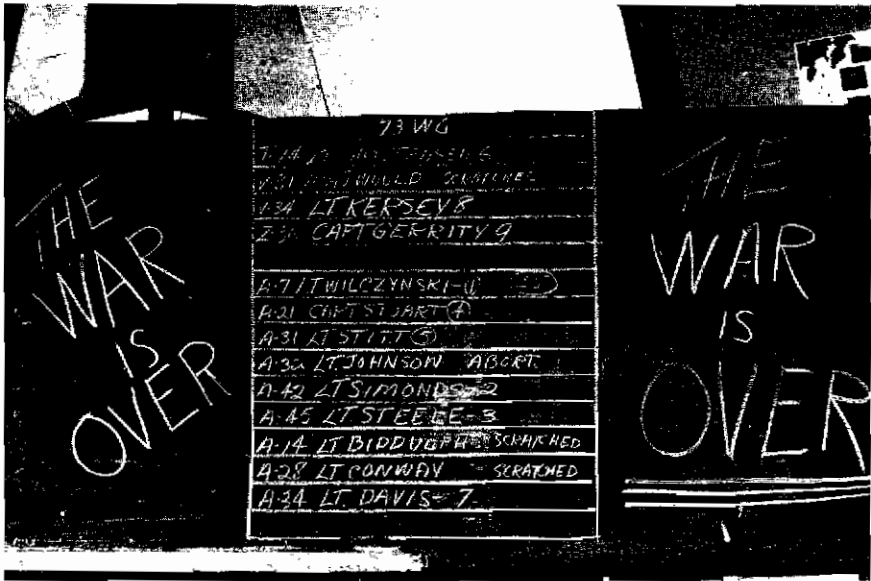 THE
WAR
IS
OVER
73 WG
SCRATCHED
LT KERSEY 8
CAPT GERRITY 9
A-7 LT WILCZYNSKI
A-21 CAPT STUART 4
A-31 LT STITT 5
A-32 LT. JOHNSON ABORT
A-42 LT SIMONDS-2
A-45 LT STEELE-3
A-14 LT BIDDULPH SCRATCHED
A-28 LT CONWAY - SCRATCHED
A-34 LT. DAVIS- 7
THE
WAR
IS
OVER